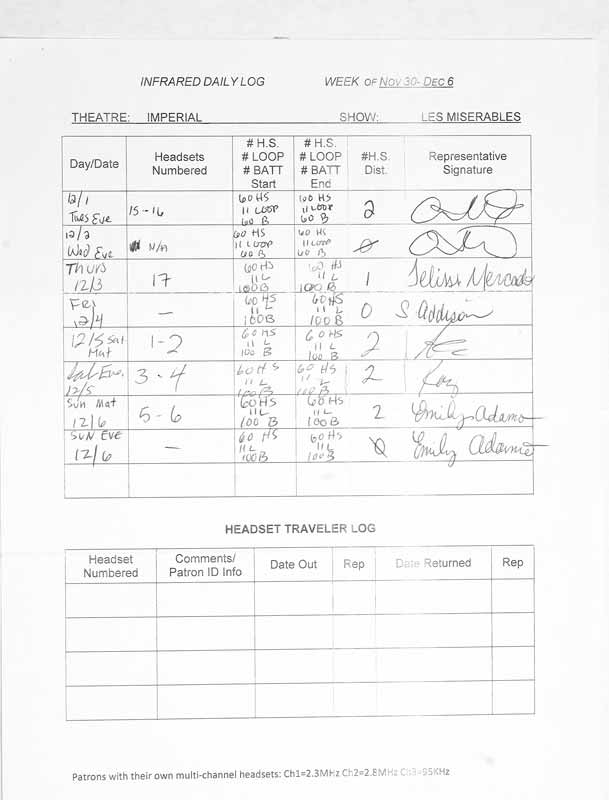 INFRARED DAILY LOG WEEK OF NOV 30- DEC 6
THEATRE: IMPERIAL SHOW: LES MISERABLES
Day/Date Headsets Numbered # H.S. # LOOP # BATT Start # H.S. # LOOP # BATT End #H.S. Dist. Representative Signature
12/1 Tues Eve 15-16 60 HS 11 LOOP 60 B 60 HS 11 LOOP 60 B 2
12/2 Wed Eve N/A 60 HS 11 LOOP 60 B 60 HS 11 LOOP 60 B 0
Thurs 12/3 17 60 HS 11 L 100 B 60 HS 11 L 100 B 1 Mercado
Fri 12/4 — 60 HS 11 L 100 B 60 HS 11 L 100 B 0 S Addison
12/5 Sat Mat 1-2 60 HS 11 L 100 B 60 HS 11 L 100 B 2
Sat Eve. 12/5 3-4 60 HS 11 L 100 B 60 HS 11 L 100 B 2
Sun Mat 12/6 5-6 60 HS 11 L 100 B 60 HS 11 L 100 B 2 Emily Adamo
SUN EVE 12/6 — 60 HS 11 L 100 B 60 HS 11 L 100 B 0 Emily
HEADSET TRAVELER LOG
Headset Numbered Comments/ Patron ID Info Date Out Rep Date Returned Rep
Patrons with their own multi-channel headsets: Ch1=2.3MHz Ch2=2.8MHz Ch3=95KHz